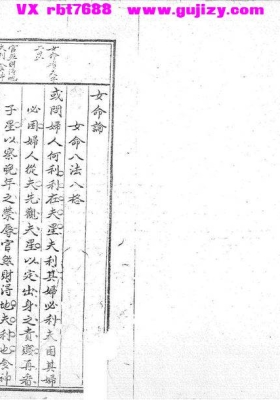 VX rbt7688 www.gujizy.com
女命論
女命八法八格
或問婦人何利利在夫星夫利其婦必利夫困其婦
必困婦人從夫先觀夫星以定出身之貴賤再看
子星以察晚年之榮辱官煞財得地夫利也食神